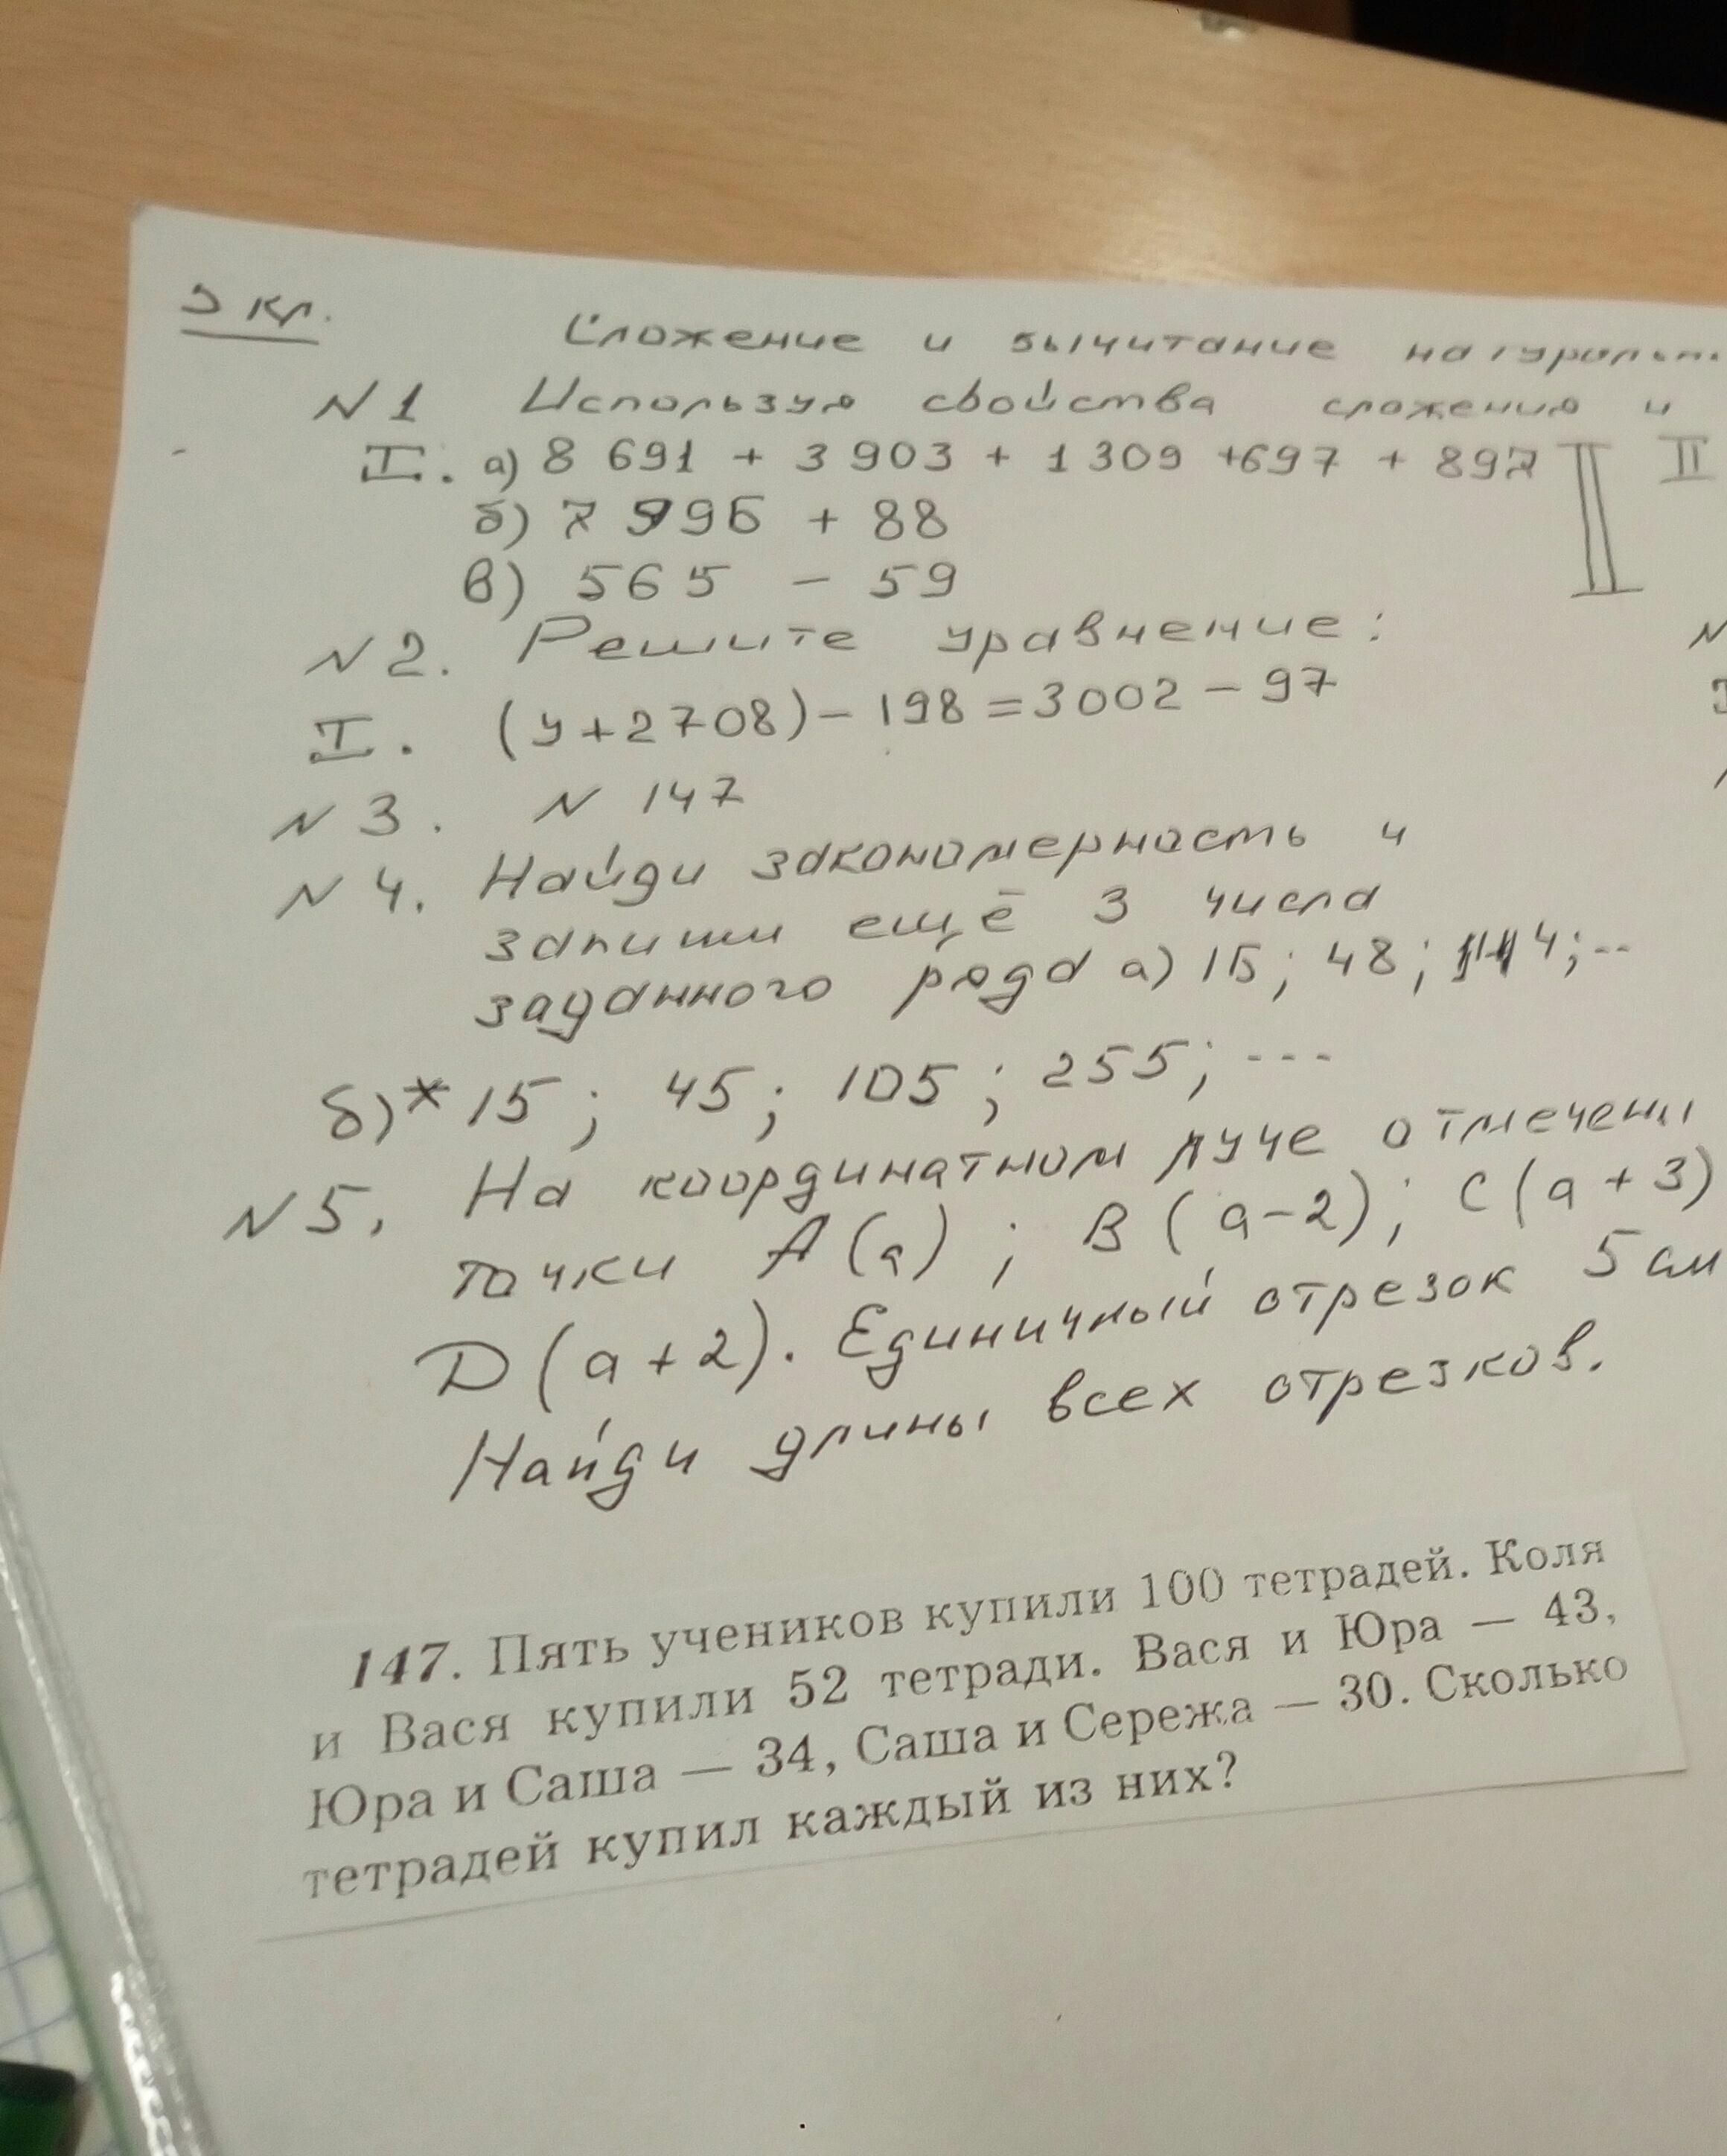 5 кл.
Сложение и вычитание
N1 Используя свойства сложения и
I. а) 8 691 + 3 903 + 1 309 + 697 + 897 II
б) 7 996 + 88
в) 565 - 59
N2. Решите уравнение:
I. (y+2708) - 198 = 3002 - 97
N3. N 147
N4. Найди закономерность и
запиши ещё 3 числа
заданного ряда а) 15; 48; 114; ..
б)* 15; 45; 105; 255; ---
N5. На координатном луче отмечены
точки A(a); B(a-2); C(a+3)
D(a+2). Единичный отрезок 5 см
Найди длины всех отрезков.
147. Пять учеников купили 100 тетрадей. Коля
и Вася купили 52 тетради. Вася и Юра — 43,
Юра и Саша — 34, Саша и Сережа — 30. Сколько
тетрадей купил каждый из них?